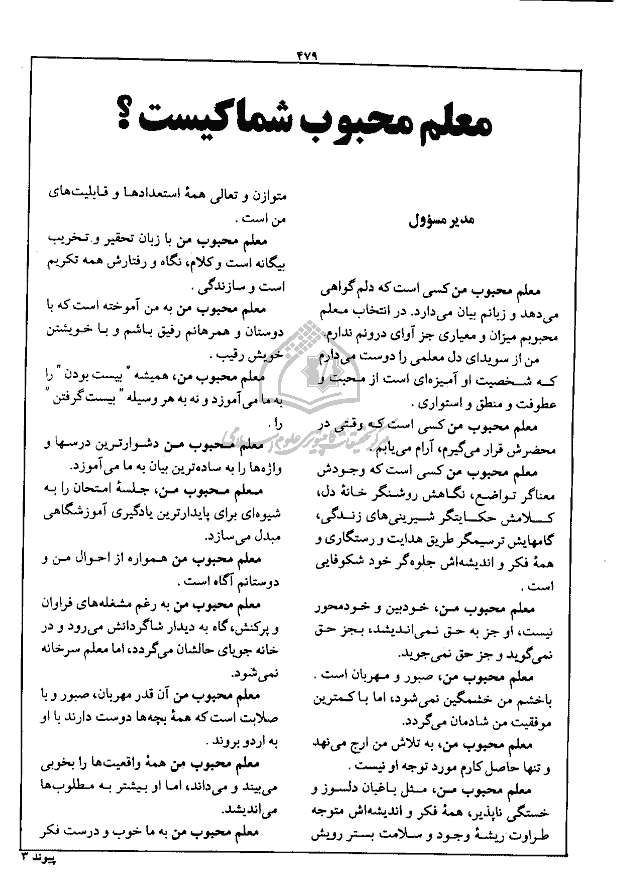 ۴۷۹
معلم محبوب شما کیست ؟
مدیر مسؤول
معلم محبوب من کسی است که دلم گواهی
می‌دهد و زبانم بیان می‌دارد. در انتخاب معلم
محبوبم میزان و معیاری جز آوای درونم ندارم.
من از سویدای دل معلمی را دوست می‌دارم
که شخصیت او آمیزه‌ای است از محبت و
عطوفت و منطق و استواری .
معلم محبوب من کسی است که وقتی در
محضرش قرار می‌گیرم، آرام می‌یابم .
معلم محبوب من کسی است که وجودش
معناگر تواضع، نگاهش روشنگر خانهٔ دل،
کلامش حکایتگر شیرینی‌های زندگی،
گامهایش ترسیمگر طریق هدایت و رستگاری و
همهٔ فکر و اندیشه‌اش جلوه‌گر خود شکوفایی
است .
معلم محبوب من، خودبین و خودمحور
نیست، او جز به حق نمی‌اندیشد، بجز حق
نمی‌گوید و جز حق نمی‌جوید.
معلم محبوب من، صبور و مهربان است .
باخشم من خشمگین نمی‌شود، اما با کمترین
موفقیت من شادمان می‌گردد.
معلم محبوب من، به تلاش من ارج می‌نهد
و تنها حاصل کارم مورد توجه او نیست .
معلم محبوب من، مثل باغبان دلسوز و
خستگی ناپذیر، همهٔ فکر و اندیشه‌اش متوجه
طراوت ریشهٔ وجود و سلامت بستر رویش
متوازن و تعالی همهٔ استعدادها و قابلیت‌های
من است .
معلم محبوب من با زبان تحقیر و تخریب
بیگانه است و کلام، نگاه و رفتارش همه تکریم
است و سازندگی .
معلم محبوب من به من آموخته است که با
دوستان و همرهانم رفیق باشم و با خویشتن
خویش رقیب .
معلم محبوب من، همیشه "بیست بودن" را
به ما می‌آموزد و نه به هر وسیله "بیست گرفتن"
را .
معلم محبوب من دشوارترین درسها و
واژه‌ها را به ساده‌ترین بیان به ما می‌آموزد.
معلم محبوب من، جلسهٔ امتحان را به
شیوه‌ای برای پایدارترین یادگیری آموزشگاهی
مبدل می‌سازد.
معلم محبوب من همواره از احوال من و
دوستانم آگاه است .
معلم محبوب من به رغم مشغله‌های فراوان
و پرکنش، گاه به دیدار شاگردانش می‌رود و در
خانه جویای حالشان می‌گردد، اما معلم سرخانه
نمی‌شود.
معلم محبوب من آن قدر مهربان، صبور و با
صلابت است که همهٔ بچه‌ها دوست دارند با او
به اردو بروند .
معلم محبوب من همهٔ واقعیت‌ها را بخوبی
می‌بیند و می‌داند، اما او بیشتر به مطلوب‌ها
می‌اندیشد.
معلم محبوب من به ما خوب و درست فکر
پیوند ۳